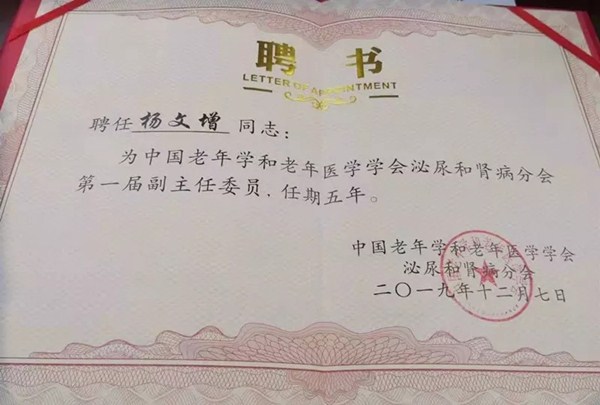 聘书
LETTER OF APPOINTMENT
聘任 杨文增 同志：
为中国老年学和老年医学学会泌尿和肾病分会
第一届副主任委员，任期五年。
中国老年学和老年医学学会
泌尿和肾病分会
二〇一九年十二月七日